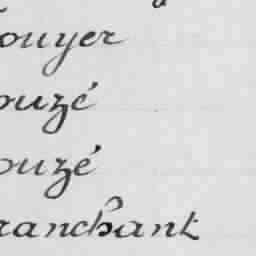 ouyer
ouzé
ouzé
ranchant